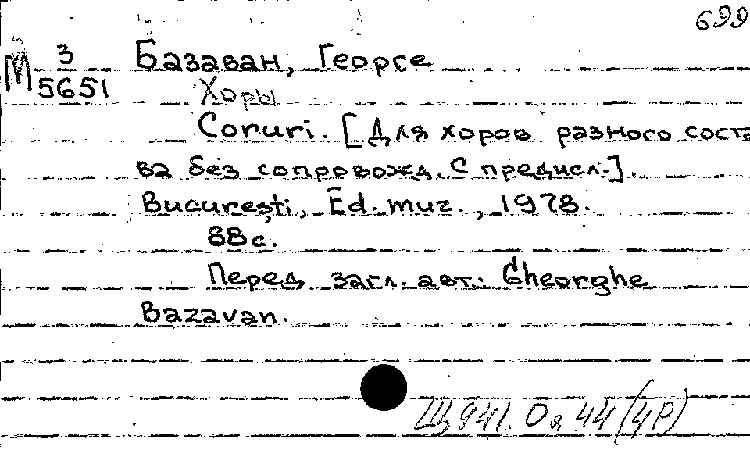 699
М 3
5651
Базаван, Георге
Хоры
Coruri. [Для хоров разного соста
ва без сопровожд. С предисл.].
Bucureşti, Ed. muz., 1978.
88 с.
Перед загл. авт.: Gheorghe
Bazavan.
Щ941.0я44(4Р)